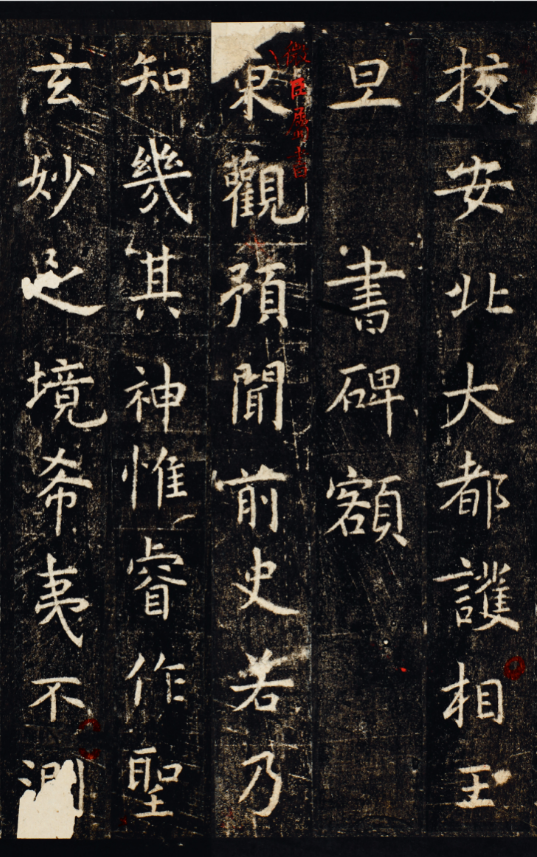 挍安北大都護相王
旦書碑額
微臣屬
東觀預聞前史若乃
知幾其神惟睿作聖
玄妙之境希夷不測